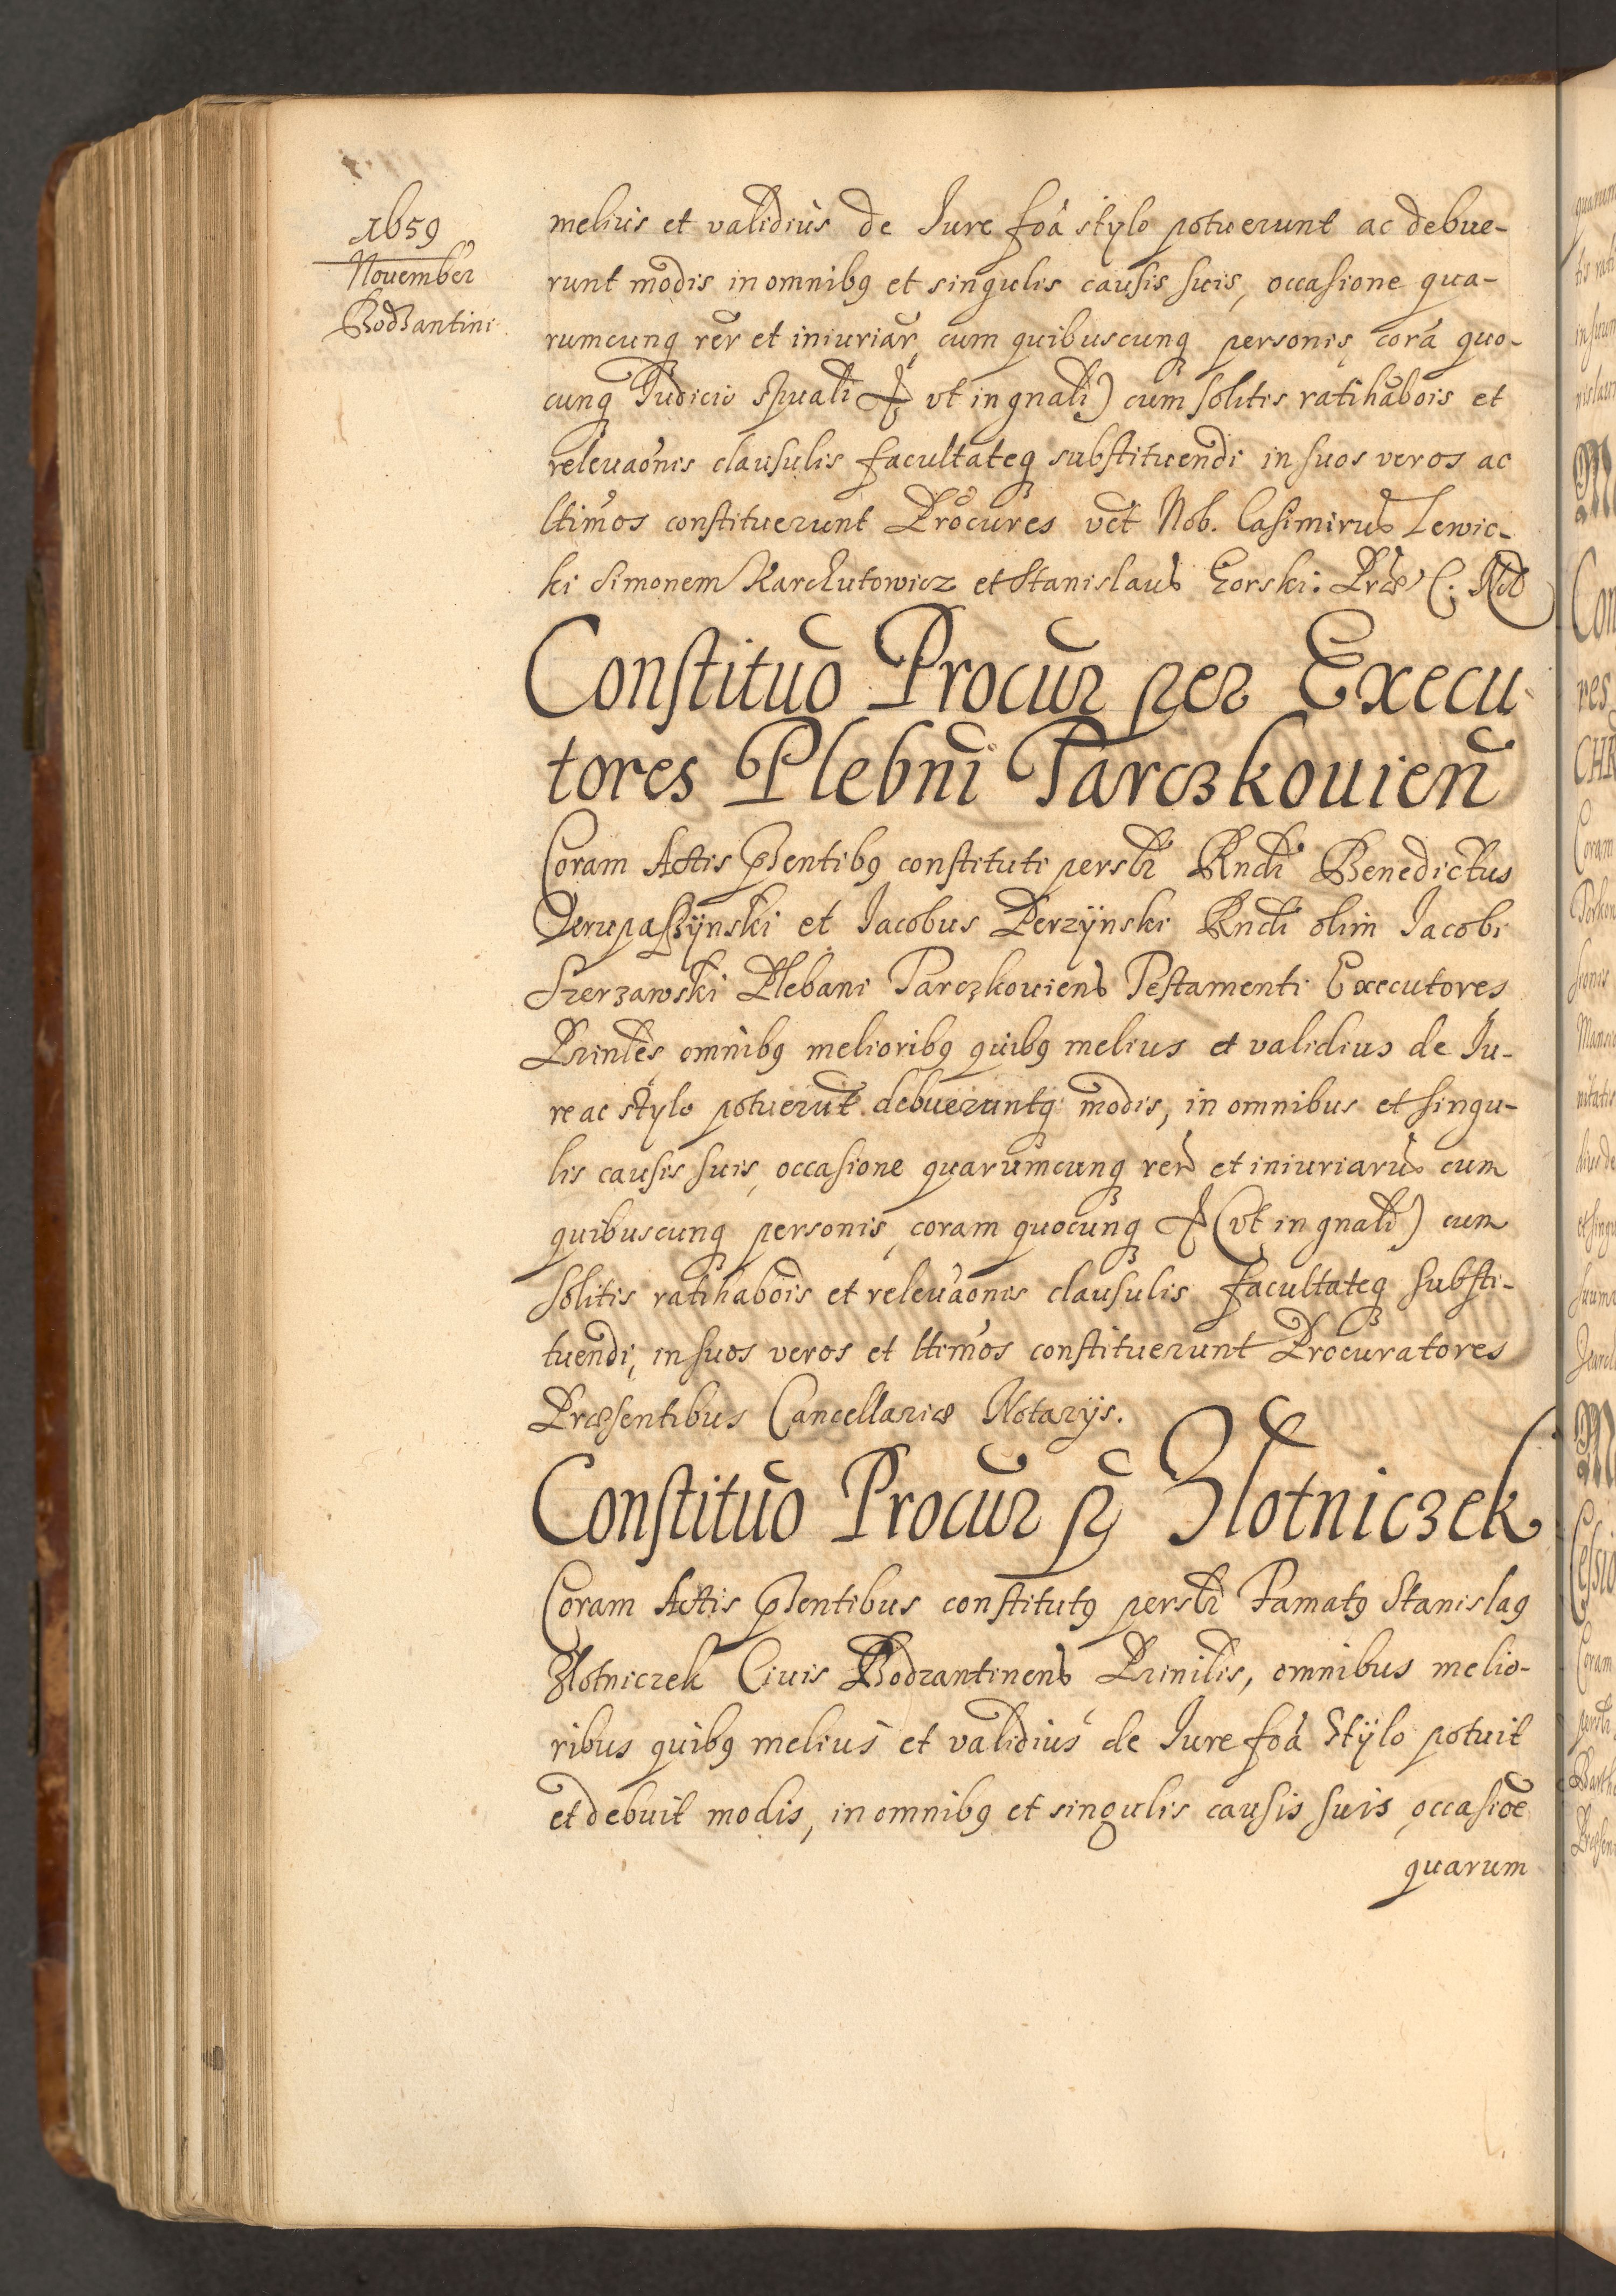 1659
Nouember
Bodzantini
melius et validius de Iure foâ stylo potuerunt ac debue-
runt modis in omnibg et singulis causis suis, occasione qua-
rumcunq rer et iniuriar, cum quibuscunq personis, corã quo-
cunq Iudicio spuali & vt in gnali) cum solitis ratihãbois et
releuaõnis clausulis facultateq substituendi in suos veros ac
ltimos constituerunt Procures vet Nob. Casimirus Lewic-
ki Simonem Karchutowicz et Stanislaus Gorski: Præ C: Not
Constituõ Procur per Execu
tores Plebni Tarczkouien
Coram Actis pntibg constituti persli Rndi Benedictus
et Iacobus Perzÿnski Rndi olim Iacobi
Szerzawski Plebani Tarczkouiens Testamenti Executores
Prinles, omnibg melioribg quibg melius et validius de Iu-
re ac stylo potuerũt debueruntq modis, in omnibus et singu-
lis causis suis, occasione quarumcunq rerũ et iniuriarũ cum
quibuscunq personis, coram quocunq & (vt in gnali) cum
solitis ratihabois et releuaõnis clausulis facultateq substi-
tuendi, in suos veros et ltimos constituerunt Procuratores
Præsentibus Cancellariæ Notarÿs.
Constituõ Procur p Zlotniczek
Coram Actis pntibus constitutg persli Famatg Stanislag
Zlotniczek Ciuis Bodzantinens Prinilis, omnibus melio-
ribus quibg melius et validius de Iure foâ Stÿlo potuit
et debuit modis, in omnibg et singulis causis suis, occasiõe
quarum